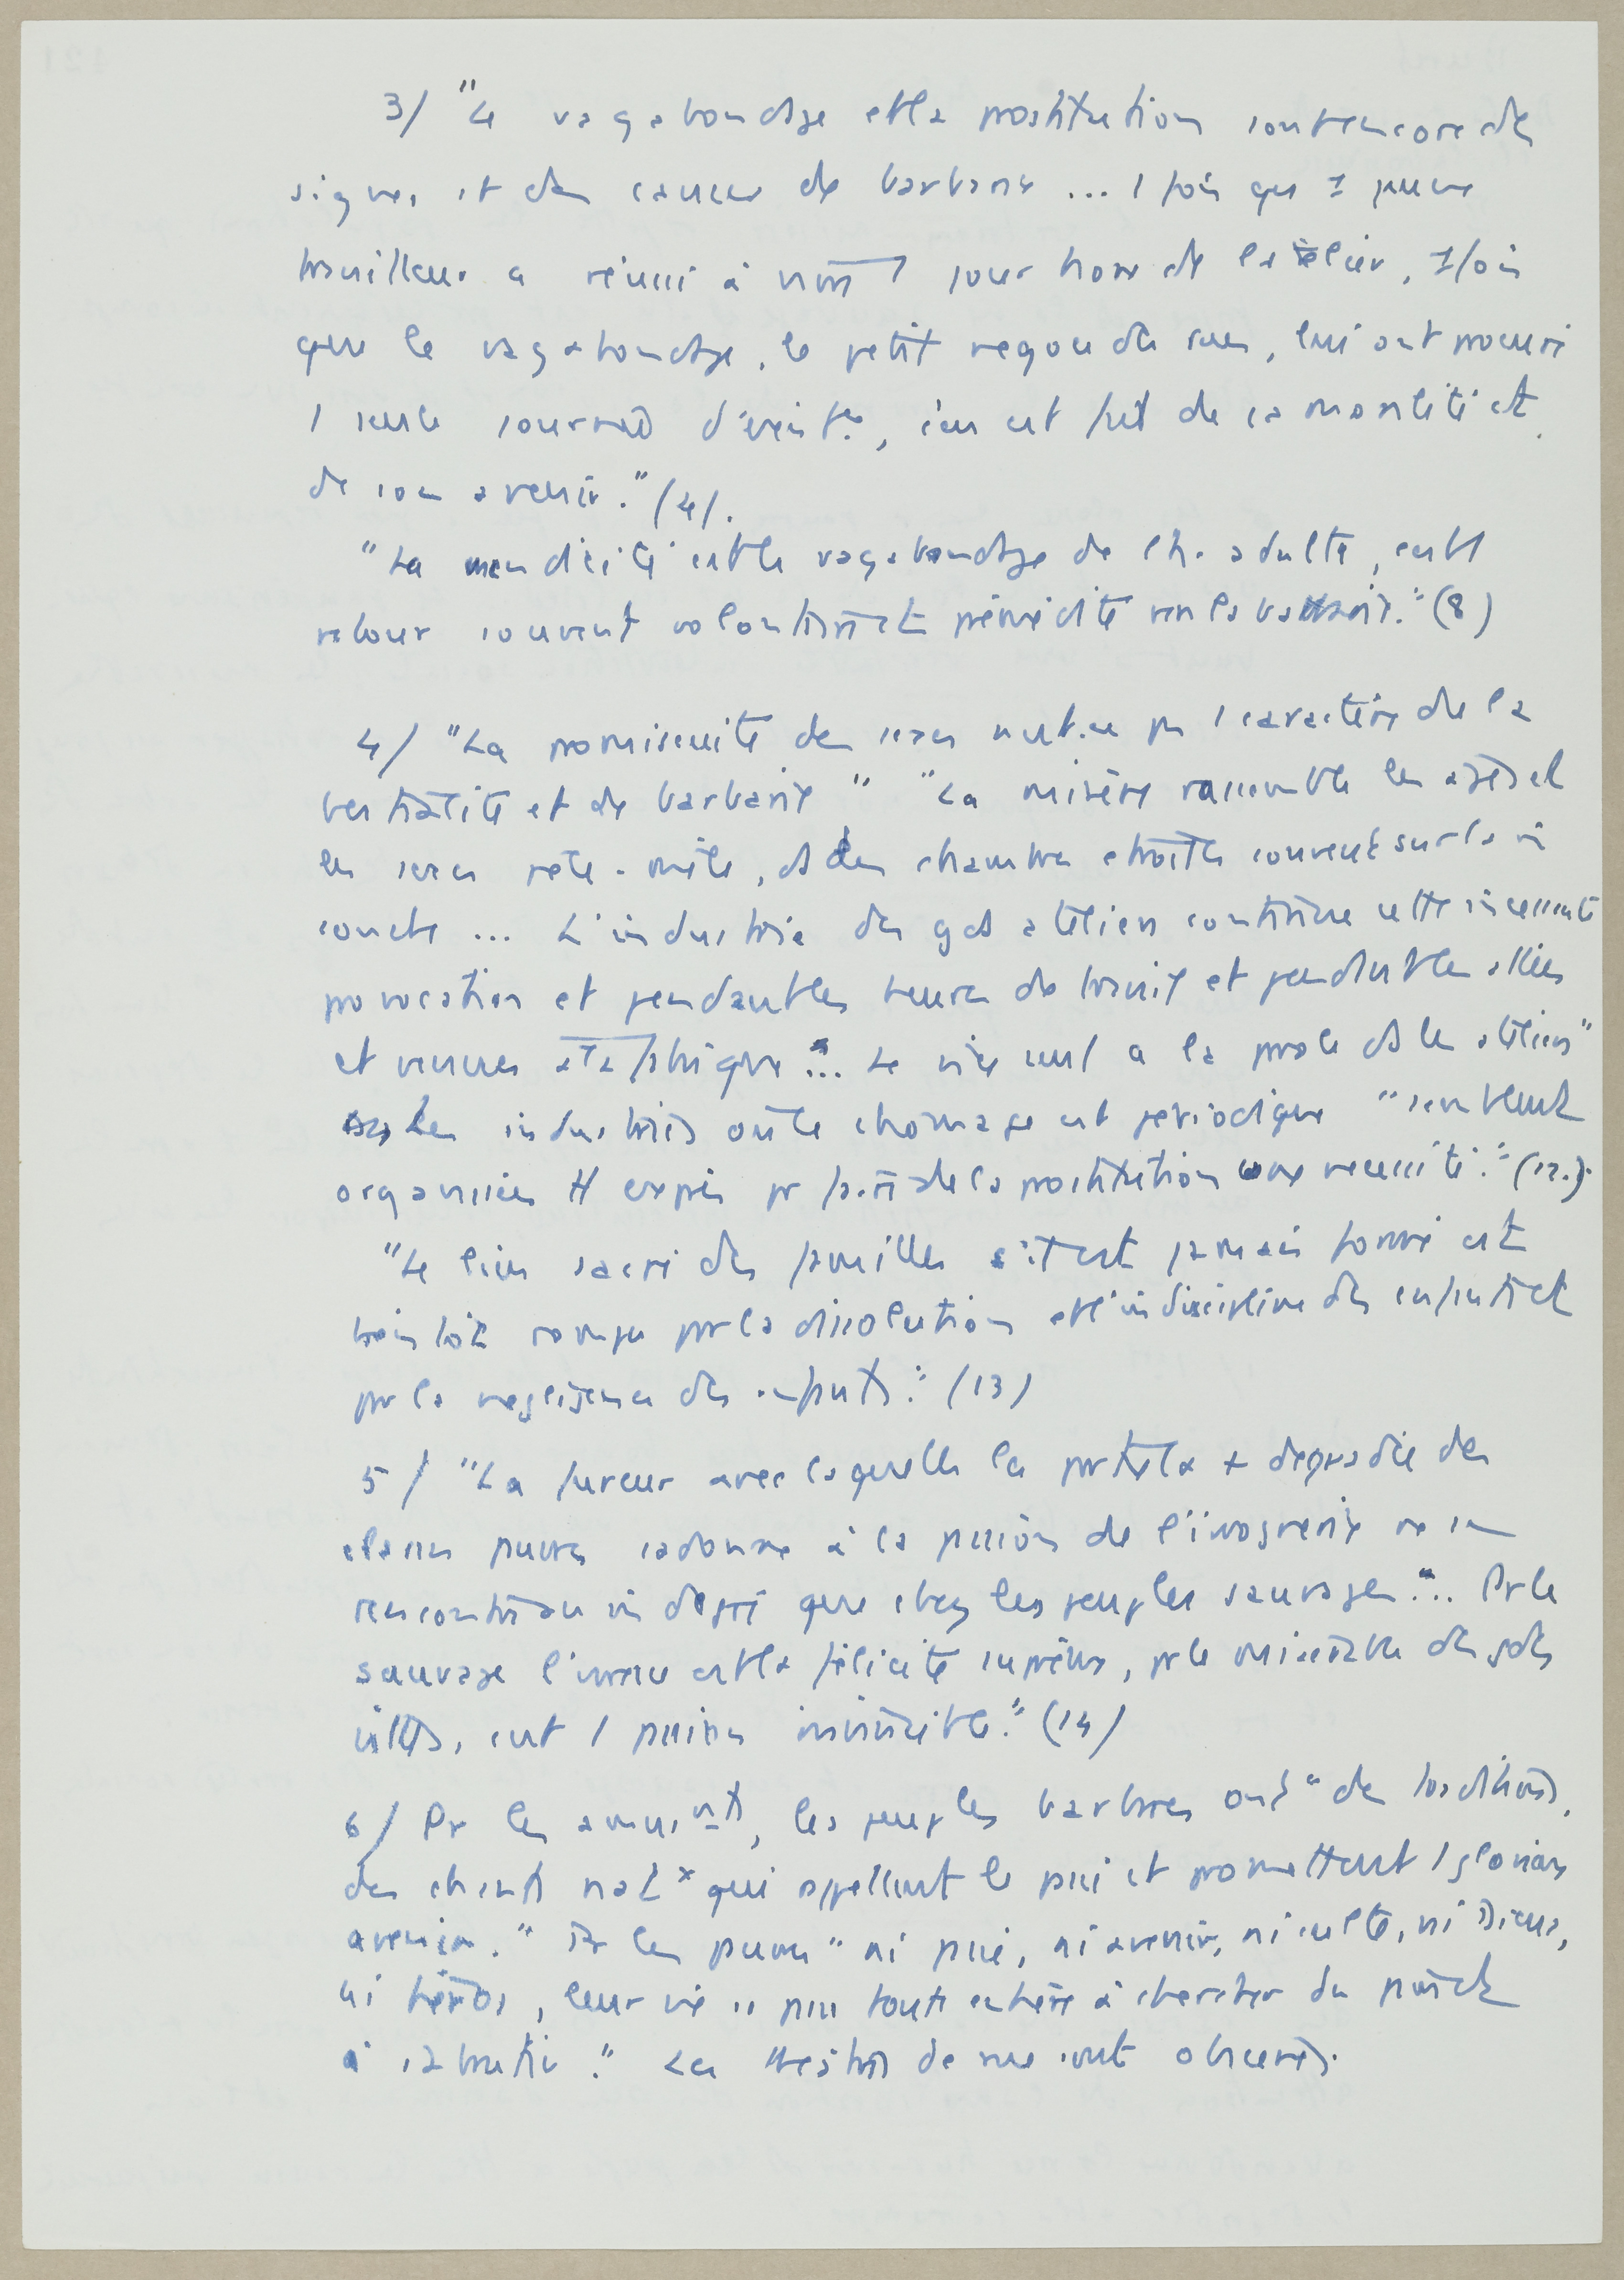 3/ "Le vagabondage et la prostitution sont encore des
signes et des causes de barbarie ... 1 fois que 1 jeune
travailleur a réussi à vivre 1 jour hors de l'atelier, 1 fois
que le vagabondage, le petit negoce des rues, lui ont procuré
1 seule journée d'existce, c'en est fait de sa moralité et
de son avenir." (4).
"La mendicité est le vagabondage de l'h. adulte, c'est 1
retour souvent volontaire et prémédité vers la barbarie." (8)
4/ "La promiscuité des sexes n'est-ce pas 1 caractère de la
bestialité et de barbarie" "La misère rassemble les âges et
les sexes pêle-mêle, ds des chambres étroites souvent sur la m
couche ... L'industrie des gds ateliers continue cette incessante
provocation et pendant les heures de travail et pendant les allées
et venues à la fabrique"... Le vice seul a la parole ds les ateliers"
Les industries où le chômage est periodique "semblent
organisées tt exprès pr faire de la prostitution une necessité." (12.).
"Le lien sacré des familles s'il est jamais formé est
bientôt rompu par la dissolution et l'indiscipline des enfants et
par la negligence des enfants." (13)
5/ "La fureur avec laquelle la partie la + degradée des
classes pauvres s'adonne à la passion de l'ivrognerie ne se
rencontre au m degré que chez les peuples sauvages"... Pr le
sauvage l'ivresse est la félicité suprême, pr le misérable des gdes
villes, c'est 1 passion invincible." (14)
6/ Pr les amusnts, les peuples barbares ont "des traditions,
des chants natx qui rappellent le passé et promettent 1 glorieux
avenir." Pr les pauvres "ni passé, ni avenir, ni culte, ni Dieux,
ni héros, leur vie se passe toute entière à chercher du pain et
à s'abrutir." Les théâtres de rue sont obscenes.